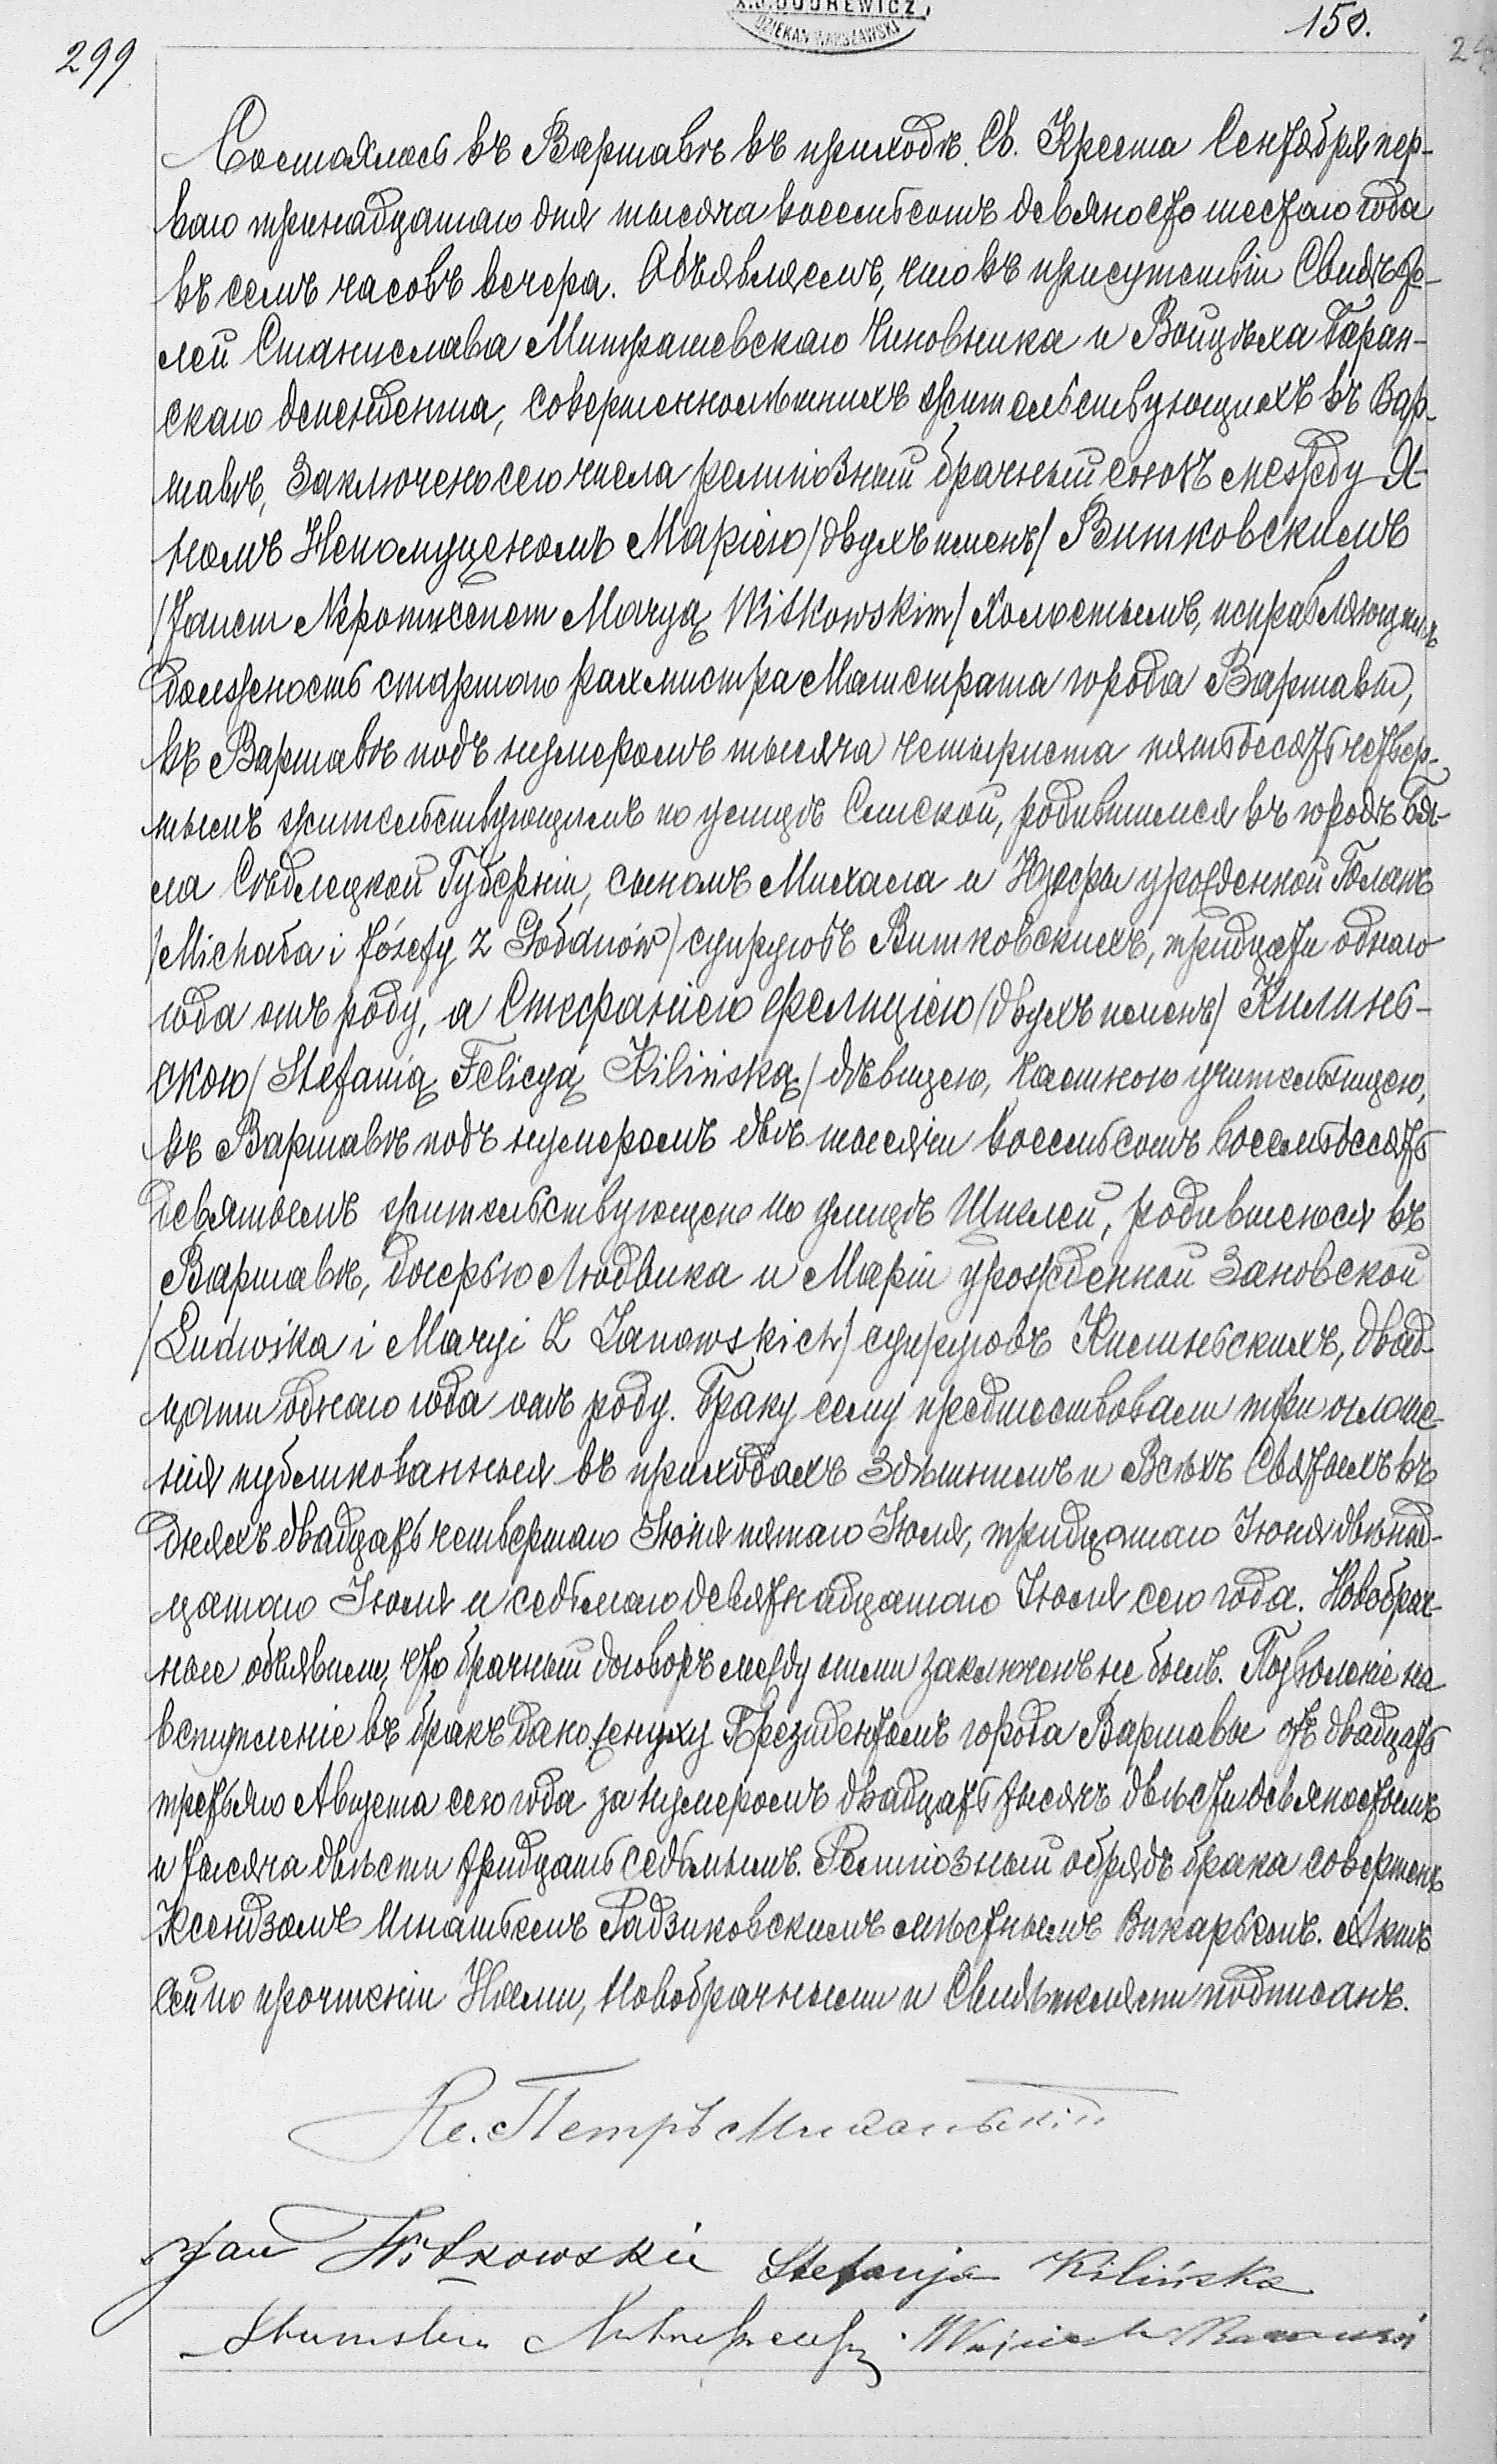 X.J.DUDREWICZ,
DZIEKAN WARSZAWSKI
150.
299
Состоялось въ Варшавѣ въ приходѣ Св. Креста Сентября пер-
ваго тринадцатаго дня тысяча восемьсотъ девяносто шестаго года
въ семъ часовъ вечера. Объявляемъ, что въ присутствіи Свидѣте-
лей Станислава Митрашевскаго Чиновника и Войцѣха Баран-
скаго депендента, совершеннолѣтнихъ жительствующихъ въ Вар-
шавѣ, Заключенъ сего числа религіозный брачный союзъ между Я-
номъ Непомуценомъ Маріею /двухъ именъ/ Витковскимъ
/Janem Nepomucenem Maryą Witkowskim/ Холостымъ, исправляющимъ
должность старшаго рахмистра Магистрата города Варшавы,
въ Варшавѣ подъ нумеромъ тысяча четыриста пятьдесятъ четвер-
тымъ жительствующимъ по улицѣ Слиской, родившимся въ городѣ Бя-
ла Сѣдлецкой Губерніи, сыномъ Михала и Юзефы урожденной Голанъ
/Michała i Józefy z Gołanów/ супруговъ Витковскихъ, тридцати одного
года отъ роду, а Стефаніею Фелиціею /двухъ именъ/ Килинь-
скою /Stefanią Felicyą Kilińską/ дѣвицею, частною учительницею,
въ Варшавѣ подъ нумеромъ двѣ тысячи восемьсотъ восемьдесятъ
девятымъ жительствующею по улицѣ Щиглей, родившеюся въ
Варшавѣ, дочерью Людвика и Маріи урожденной Зановской
/Ludwika i Maryi z Zanowskich/ супруговъ Килиньскихъ, двад-
цати одного года отъ роду. Браку сему предшествовали три оглаше-
нія публикованныя въ приходахъ Здѣшнемъ и Всѣхъ Святыхъ въ
дняхъ двадцать четвертаго Іюня пятаго Іюля, тридцатаго Іюня двѣнад-
цатаго Іюля и седьмаго девятнадцатаго Іюля сего года. Новобрач-
ные объявили, что брачный договоръ между ними заключенъ не былъ. Позволеніе на
вступленіе въ бракъ дано жениху Президентомъ города Варшавы отъ двадцать
третьяго Августа сего года за нумеромъ двадцать тысячъ двѣсти девяностымъ
и тысяча двѣсти тридцать седьмымъ. Религіозный обрядъ брака совершенъ
Ксендзомъ Игнатьемъ Радзиковскимъ мѣстнымъ Викарьемъ. Актъ
сей по прочтеніи Нами, Новобрачными и Свидѣтелями подписанъ.
Кс. Петръ
Jan Witkowski Stefanja Kilińska
Wojciech Barański